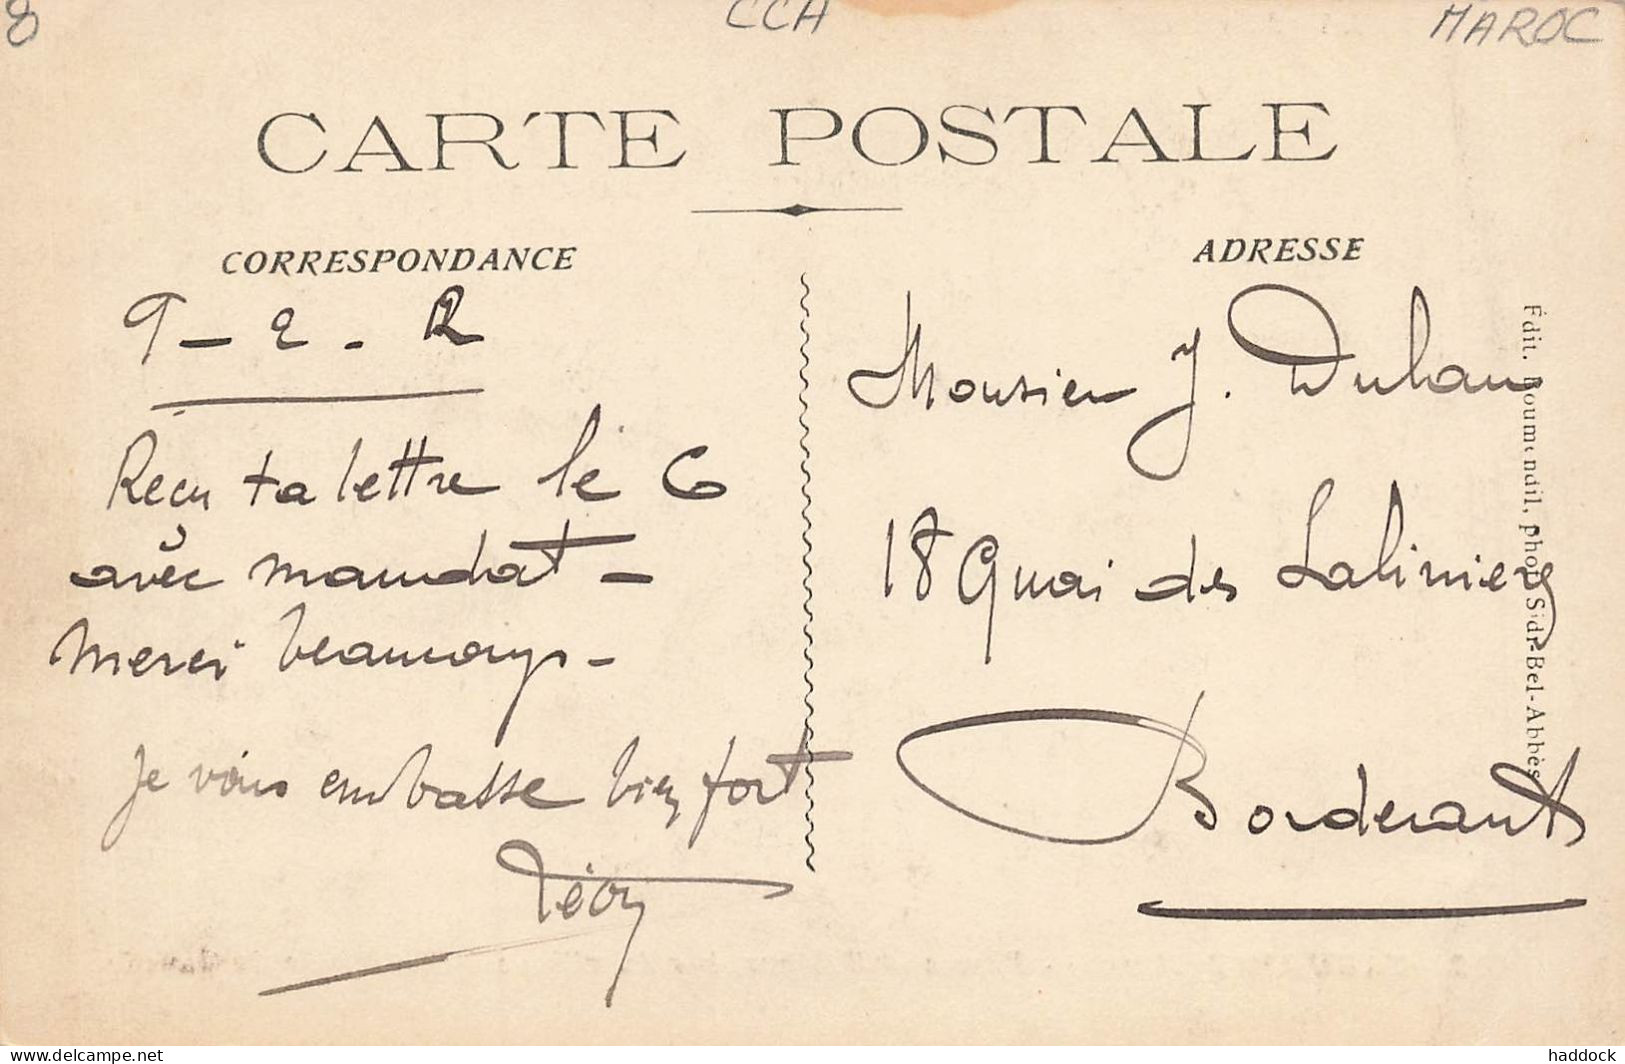 8
CCH
MAROC
CARTE POSTALE
CORRESPONDANCE
9 - 2 - 12
Reçu ta lettre le 6
avec mandat -
merci beaucoup -
Je vous embrasse bien fort
Léon
ADRESSE
Monsieur J. Duhau
18 Quai des Salinieres
Bordeaux
Édit. Boumendil, phot. Sidi-Bel-Abbès
delcampe.net
haddock